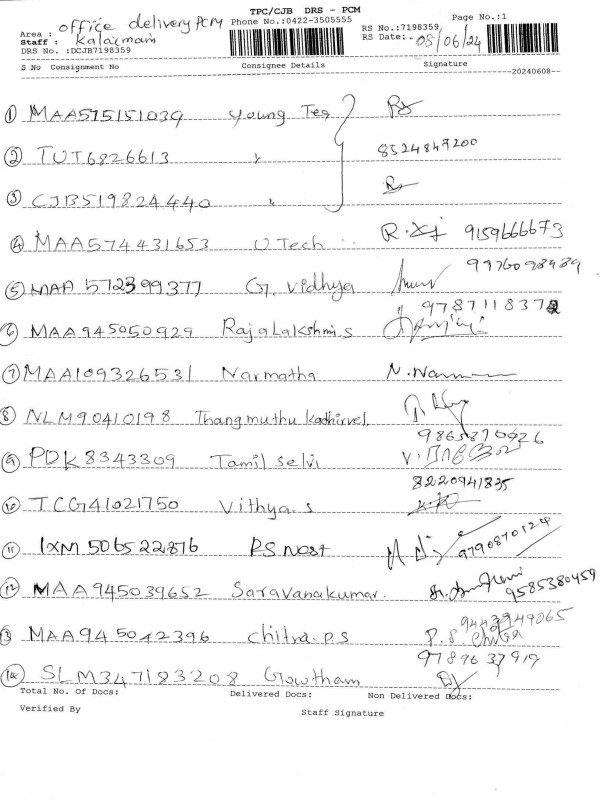 TPC/CJB DRS - PCM
Area : office delivery PCM Phone No.:0422-3505555 RS No.:7198359 Page No.:1
Staff : Kalaimani RS Date:- 08/06/24
DRS No. :DCJB7198359
S No Consignment No Consignee Details Signature
20240608
① MAA575151039 Young Teq
② TUT6826613 〃 8524847200
③ CJB519824440 〃
④ MAA574431653 U Tech R. 9159666673
⑤ MAA 572399377 G. Vidhya 9976098489
⑥ MAA945050929 Rajalakshmi.s 978711837
⑦ MAA109326531 Narmatha N.
⑧ NLM90410198 Thangmuthu kadhirvel.
⑨ PDK8343309 Tamil selvi 9865870926
⑩ TCG41021750 Vithya.s 8220941835
⑪ IXM 506522876 PS Nest 9790870124
⑫ MAA945039652 Saravanakumar. 9585380459
⑬ MAA945042396 Chitra.P.S 9443949065 P.S Chitra
⑭ SLM347183208 Gowtham 9789637919
Total No. Of Docs: Delivered Docs: Non Delivered Docs:
Verified By Staff Signature